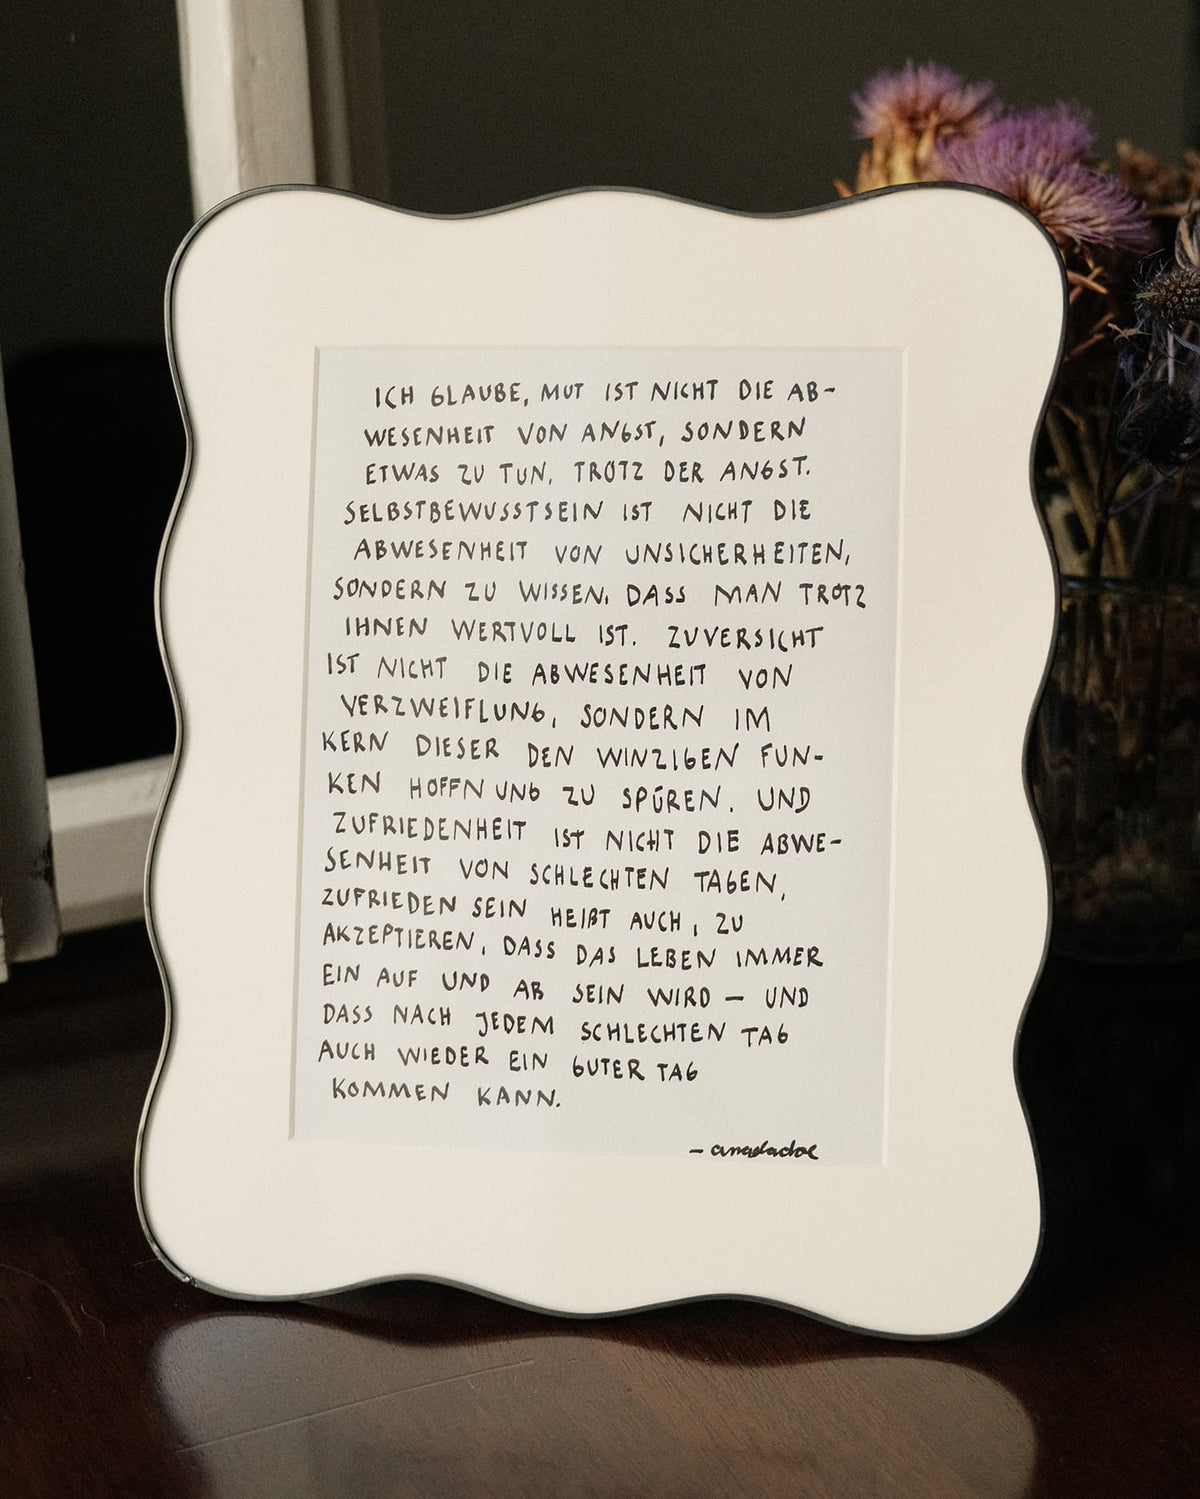 ICH GLAUBE, MUT IST NICHT DIE AB-
WESENHEIT VON ANGST, SONDERN
ETWAS ZU TUN, TROTZ DER ANGST.
SELBSTBEWUSSTSEIN IST NICHT DIE
ABWESENHEIT VON UNSICHERHEITEN,
SONDERN ZU WISSEN, DASS MAN TROTZ
IHNEN WERTVOLL IST. ZUVERSICHT
IST NICHT DIE ABWESENHEIT VON
VERZWEIFLUNG, SONDERN IM
KERN DIESER DEN WINZIGEN FUN-
KEN HOFFNUNG ZU SPÜREN. UND
ZUFRIEDENHEIT IST NICHT DIE ABWE-
SENHEIT VON SCHLECHTEN TAGEN,
ZUFRIEDEN SEIN HEIẞT AUCH, ZU
AKZEPTIEREN, DASS DAS LEBEN IMMER
EIN AUF UND AB SEIN WIRD — UND
DASS NACH JEDEM SCHLECHTEN TAG
AUCH WIEDER EIN GUTER TAG
KOMMEN KANN.